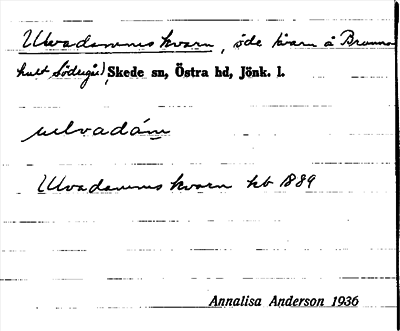 Ulvadamms kvarn, öde kvarn å Brunns-
hult Södergård, Skede sn, Östra hd, Jönk. l.
ulvadám
Ulvadamms kvarn kb 1889
Annalisa Anderson 1936